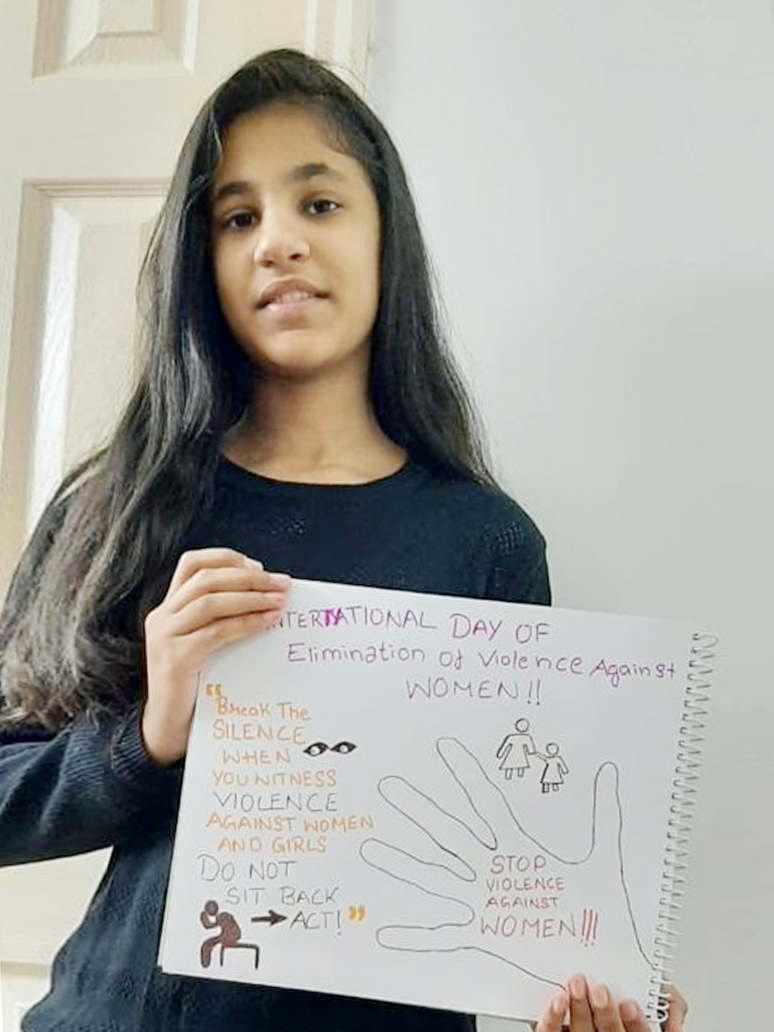 INTERNATIONAL DAY OF
Elimination of Violence Against
WOMEN!!
"Break The
SILENCE
WHEN
YOU WITNESS
VIOLENCE
AGAINST WOMEN
AND GIRLS
DO NOT
SIT BACK
ACT!"
STOP
VIOLENCE
AGAINST
WOMEN!!!